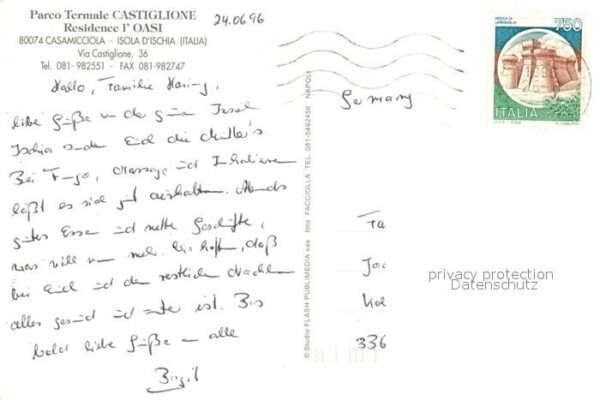 Parco Termale CASTIGLIONE
Residence l' OASI
80074 CASAMICCIOLA - ISOLA D'ISCHIA (ITALIA)
Via Castiglione, 36
Tel. 081- 982551 - FAX 081-982747
24.06.96
Hallo, Familie
liebe Grüße von der grünen Insel
Ischia senden Euch die
Bei Fango, Massage und Inhalieren
läßt es sich gut aushalten. Abends
gutes Essen und nette Geschäfte,
was will man mehr. Wir hoffen, daß
bei Euch und den restlichen
alles gesund und munter ist. Bis
bald liebe Grüße an alle
Birgit
© Studio FLASH PUBLIMEDIA sas foto FACCIOLLA TEL. 081-5492456 NAPOLI
ROCCA DI URBISAGLIA
750
ITALIA
Germany
Fa
Joc
336
privacy protection
Datenschutz